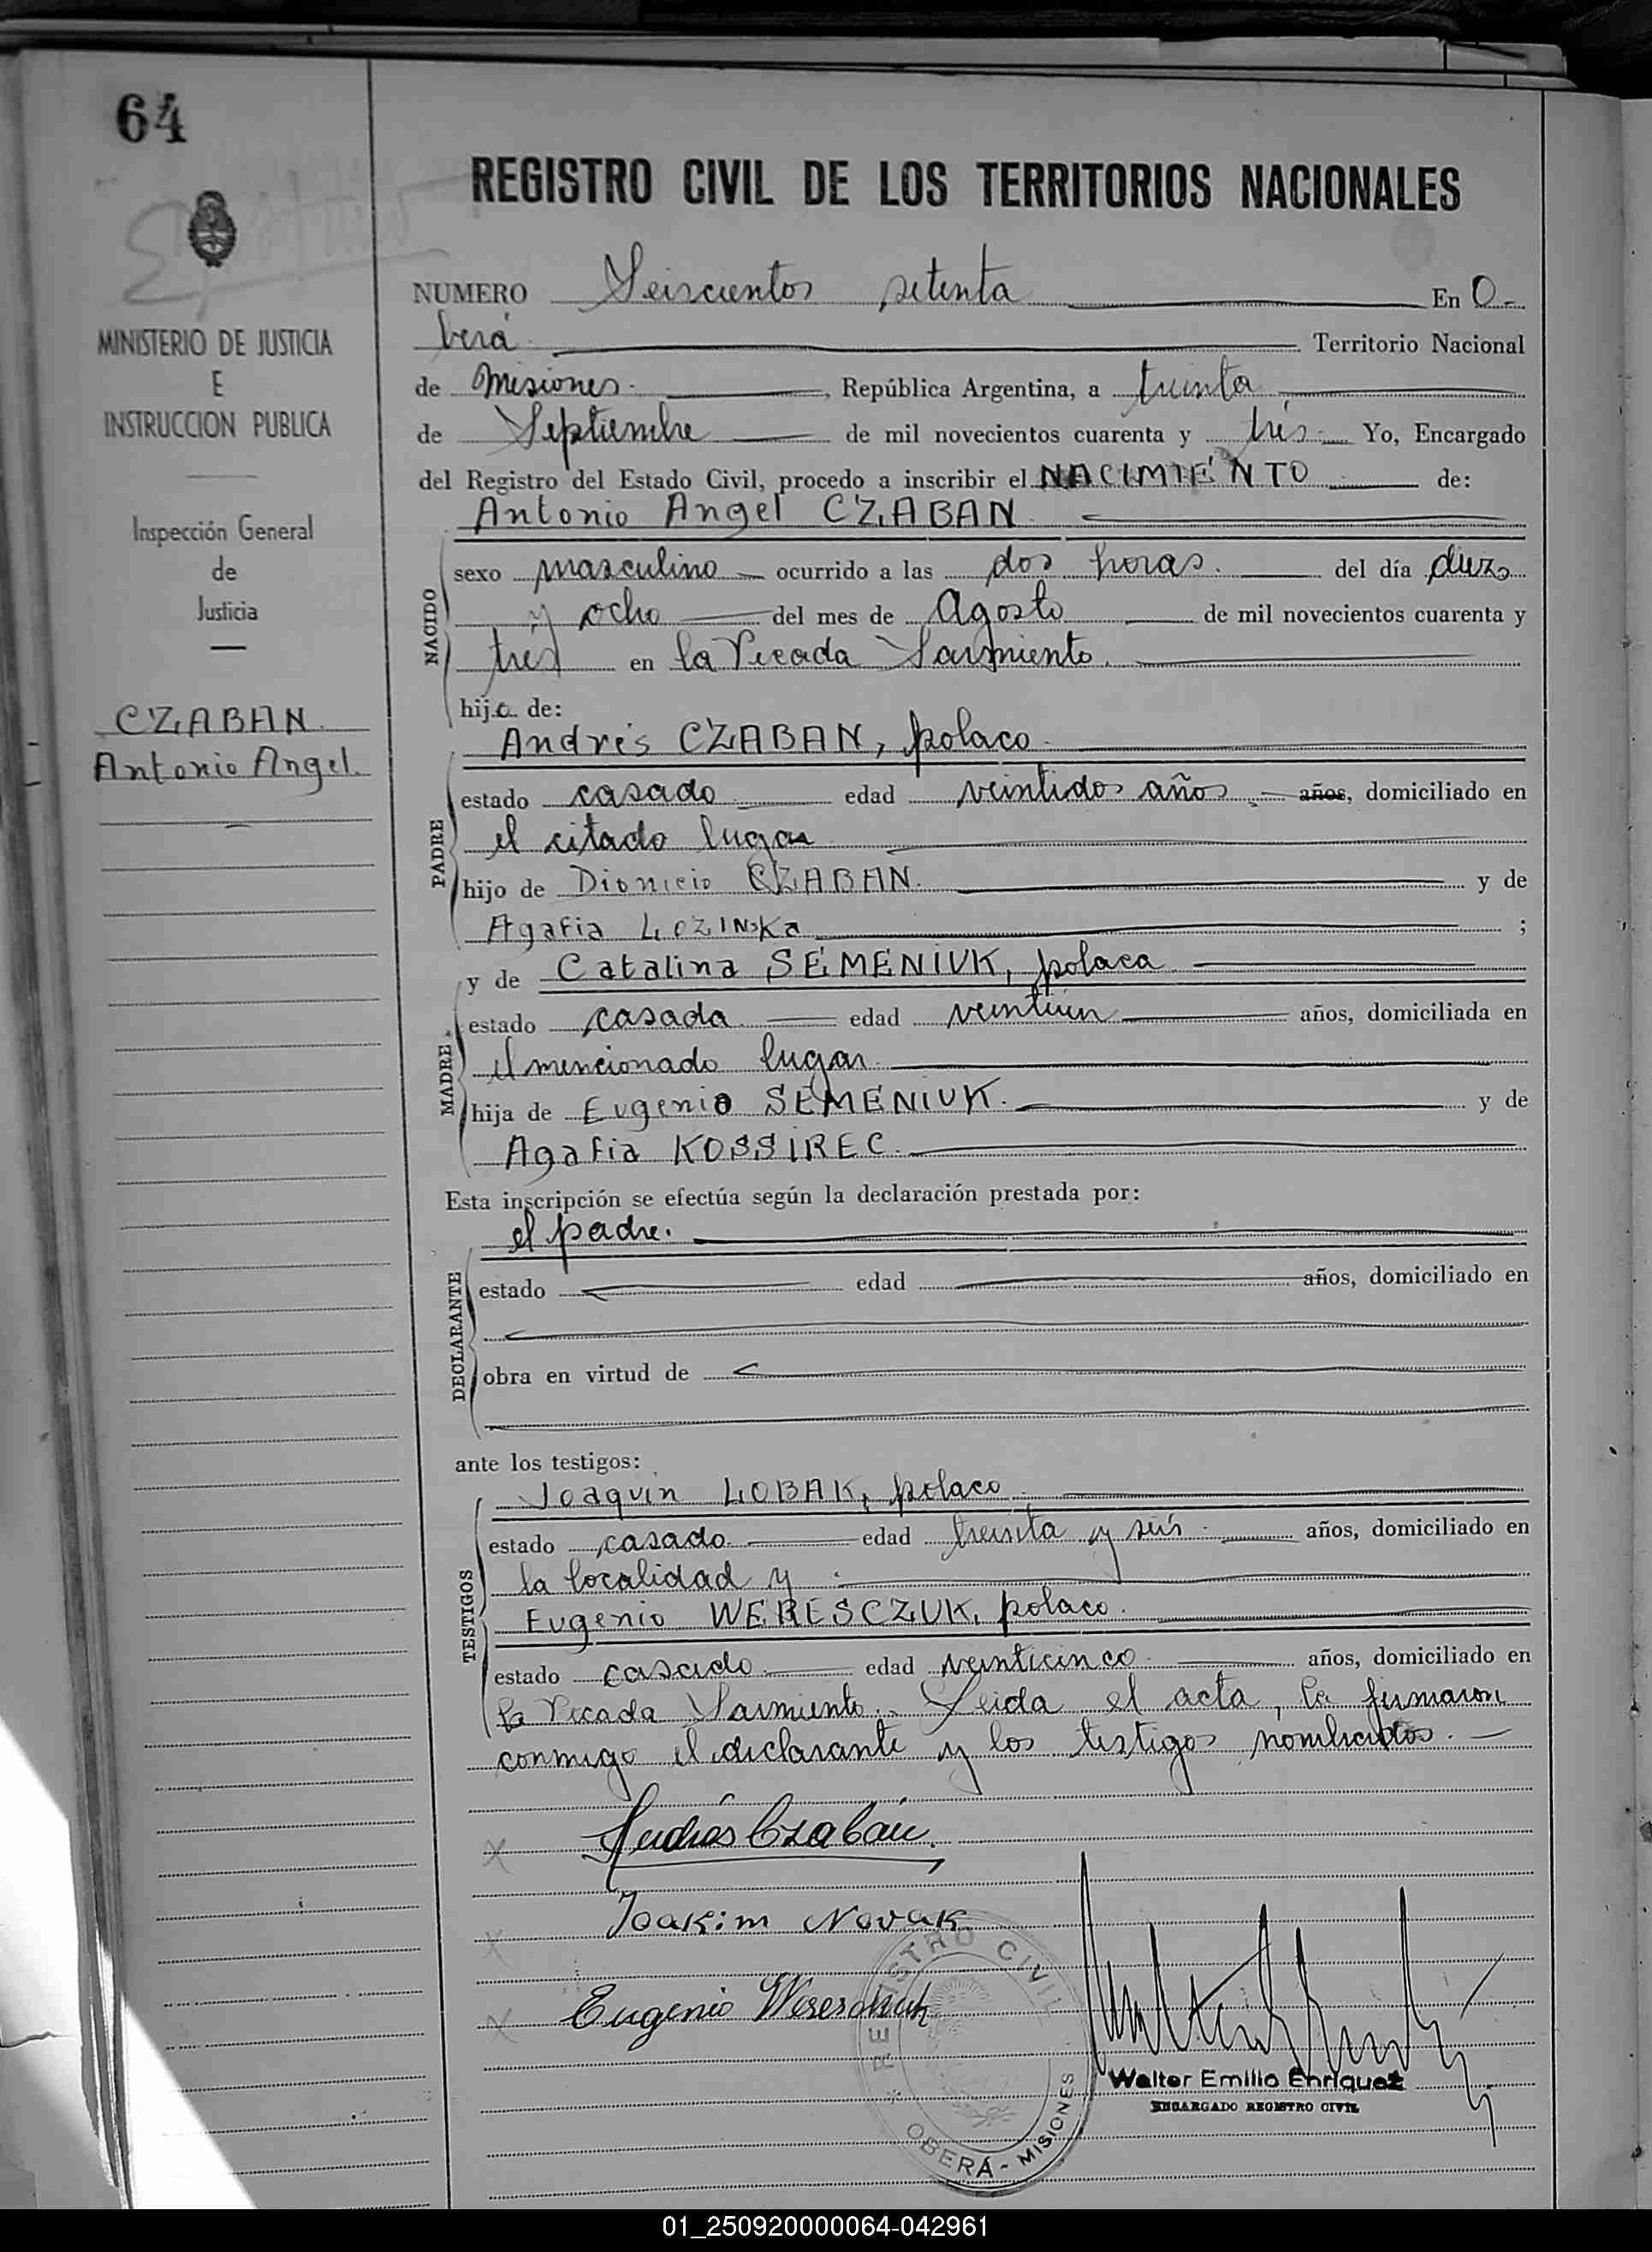 64
REGISTRO CIVIL DE LOS TERRITORIOS NACIONALES
MINISTERIO DE JUSTICIA
E
INSTRUCCION PUBLICA
Inspección General
de
Justicia
CZABAN
Antonio Angel.
NUMERO Seiscientos setenta En O-
berá Territorio Nacional
de Misiones. , República Argentina, a treinta
de Septiembre de mil novecientos cuarenta y tres Yo, Encargado
del Registro del Estado Civil, procedo a inscribir el NACIMIENTO de:
Antonio Angel CZABAN
NACIDO
sexo masculino ocurrido a las dos horas. del día diez
y ocho del mes de Agosto de mil novecientos cuarenta y
tres en la Picada Sarmiento.
hijo de:
PADRE
Andrés CZABAN, polaco
estado casado edad veintidos años años, domiciliado en
el citado lugar
hijo de Dionicio CZABAN. y de
Agafia LOZINSKa ;
MADRE
y de Catalina SEMENIUK, polaca
estado casada edad veintiun años, domiciliada en
el mencionado lugar.
hija de Eugenio SEMENIUK. y de
Agafia KOSSIREC.
Esta inscripción se efectúa según la declaración prestada por:
el padre.
DECLARANTE
estado edad años, domiciliado en
obra en virtud de
ante los testigos:
TESTIGOS
Joaquin LOBAK, polaco
estado casado edad treinta y seis años, domiciliado en
la localidad y
Eugenio WERESCZUK, polaco.
estado casado edad veinticinco años, domiciliado en
la Picada Sarmiento. Leida el acta, la firmaron
conmigo el declarante y los testigos nombrados.
Andrés Czabán
Joakim Novak
Eugenio Wereschuk
REGISTRO CIVIL
OBERÁ - MISIONES
Walter Emilio Enriquez
ENCARGADO REGISTRO CIVIL
01_250920000064-042961